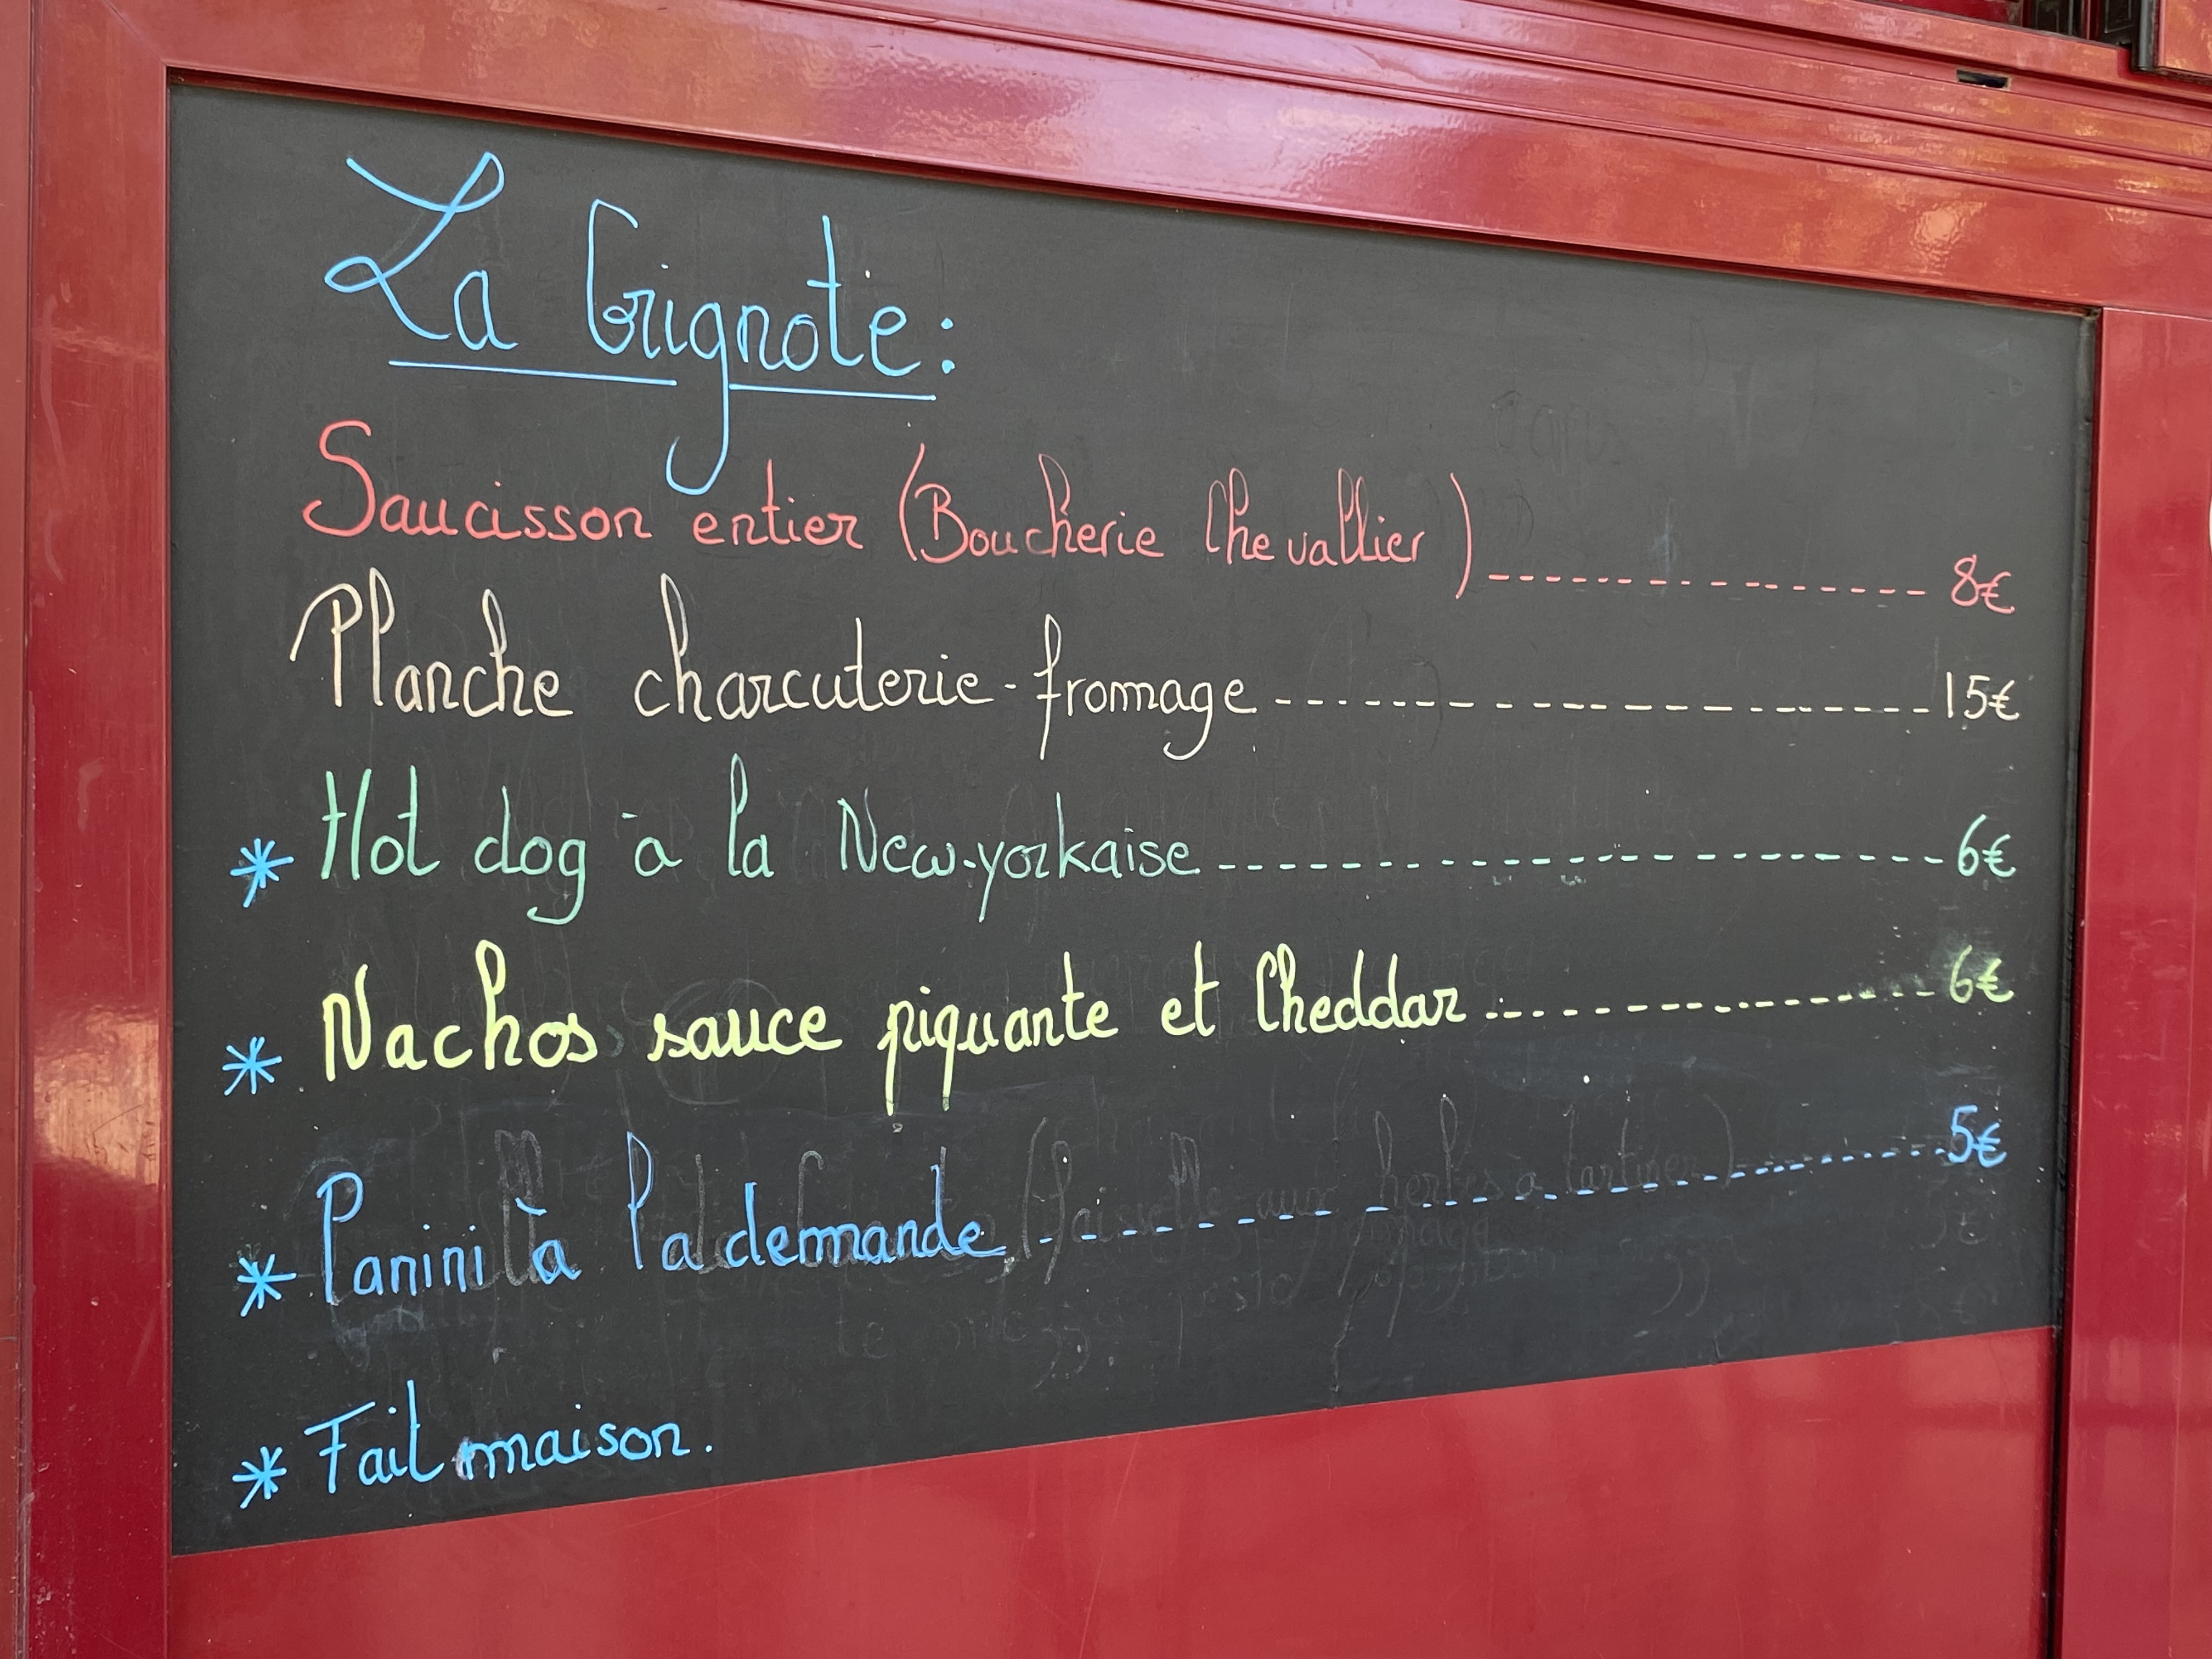 La Grignote :
Saucisson entier (Boucherie Chevallier) 8€
Planche charcuterie-fromage 15€
* Hot dog à la New-yorkaise 6€
* Nachos sauce piquante et Cheddar 6€
* Panini à la demande 5€
* Fait maison.